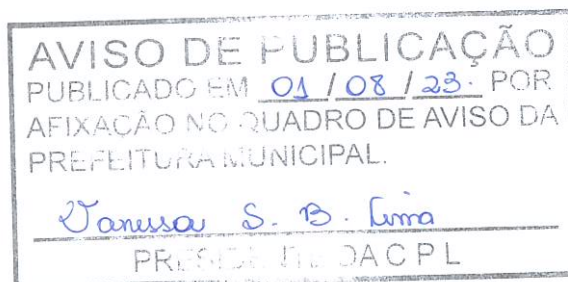 AVISO DE PUBLICAÇÃO
PUBLICADO EM 01 / 08 / 23. POR
AFIXAÇÃO NO QUADRO DE AVISO DA
PREFEITURA MUNICIPAL.
Vanessa S. B. Lima
PRESIDENTE DA C P L